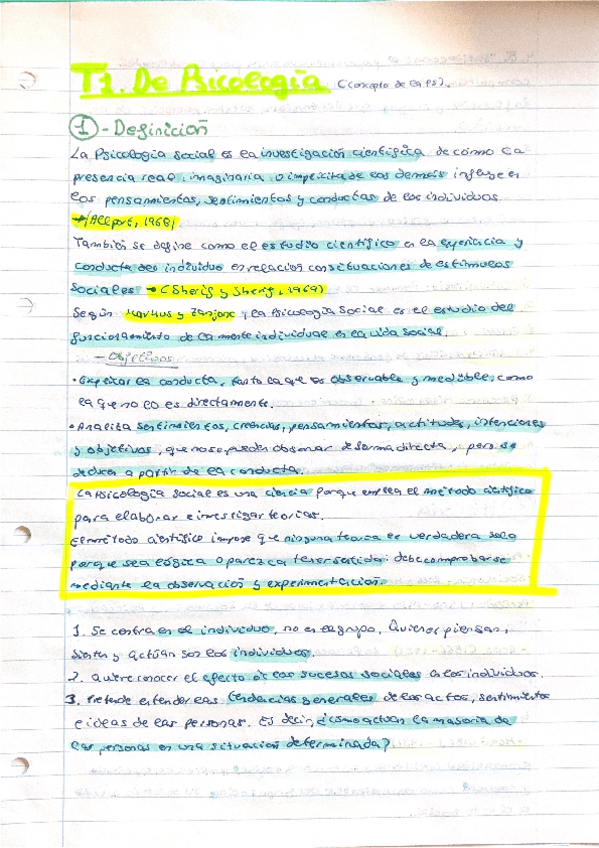 T1. De Psicología (concepto de la PS).
1 - Definición
La Psicología social es la investigación científica de cómo la
presencia real, imaginaria o implícita de los demás influye en
los pensamientos, sentimientos y conductas de los individuos
→ (Allport, 1968)
También se define como el estudio científico en la experiencia y
conducta del individuo en relación con situaciones de estímulos
sociales → (Sherif y Sherif, 1969)
Según Markus y Zanjonc, la Psicología Social es el estudio del
funcionamiento de la mente individual en la vida social.
- Objetivos
· Explicar la conducta, tanto la que es observable y medible, como
la que no lo es directamente.
· Analiza sentimientos, creencias, pensamientos, actitudes, intenciones
y objetivos, que no se pueden observar de forma directa, pero se
deducen a partir de la conducta.
La Psicología social es una ciencia porque emplea el método científico
para elaborar e investigar teorías.
El método científico impone que ninguna teoría es verdadera solo
porque sea lógica o parezca tener sentido: debe comprobarse
mediante la observación y experimentación.
1. Se centra en el individuo, no en el grupo. Quienes piensan,
sienten y actúan son los individuos.
2. Quiere conocer el efecto de los sucesos sociales en los individuos.
3. Pretende entender las tendencias generales de los actos, sentimientos
e ideas de las personas. Es decir, ¿cómo actúan la mayoría de
las personas en una situación determinada?